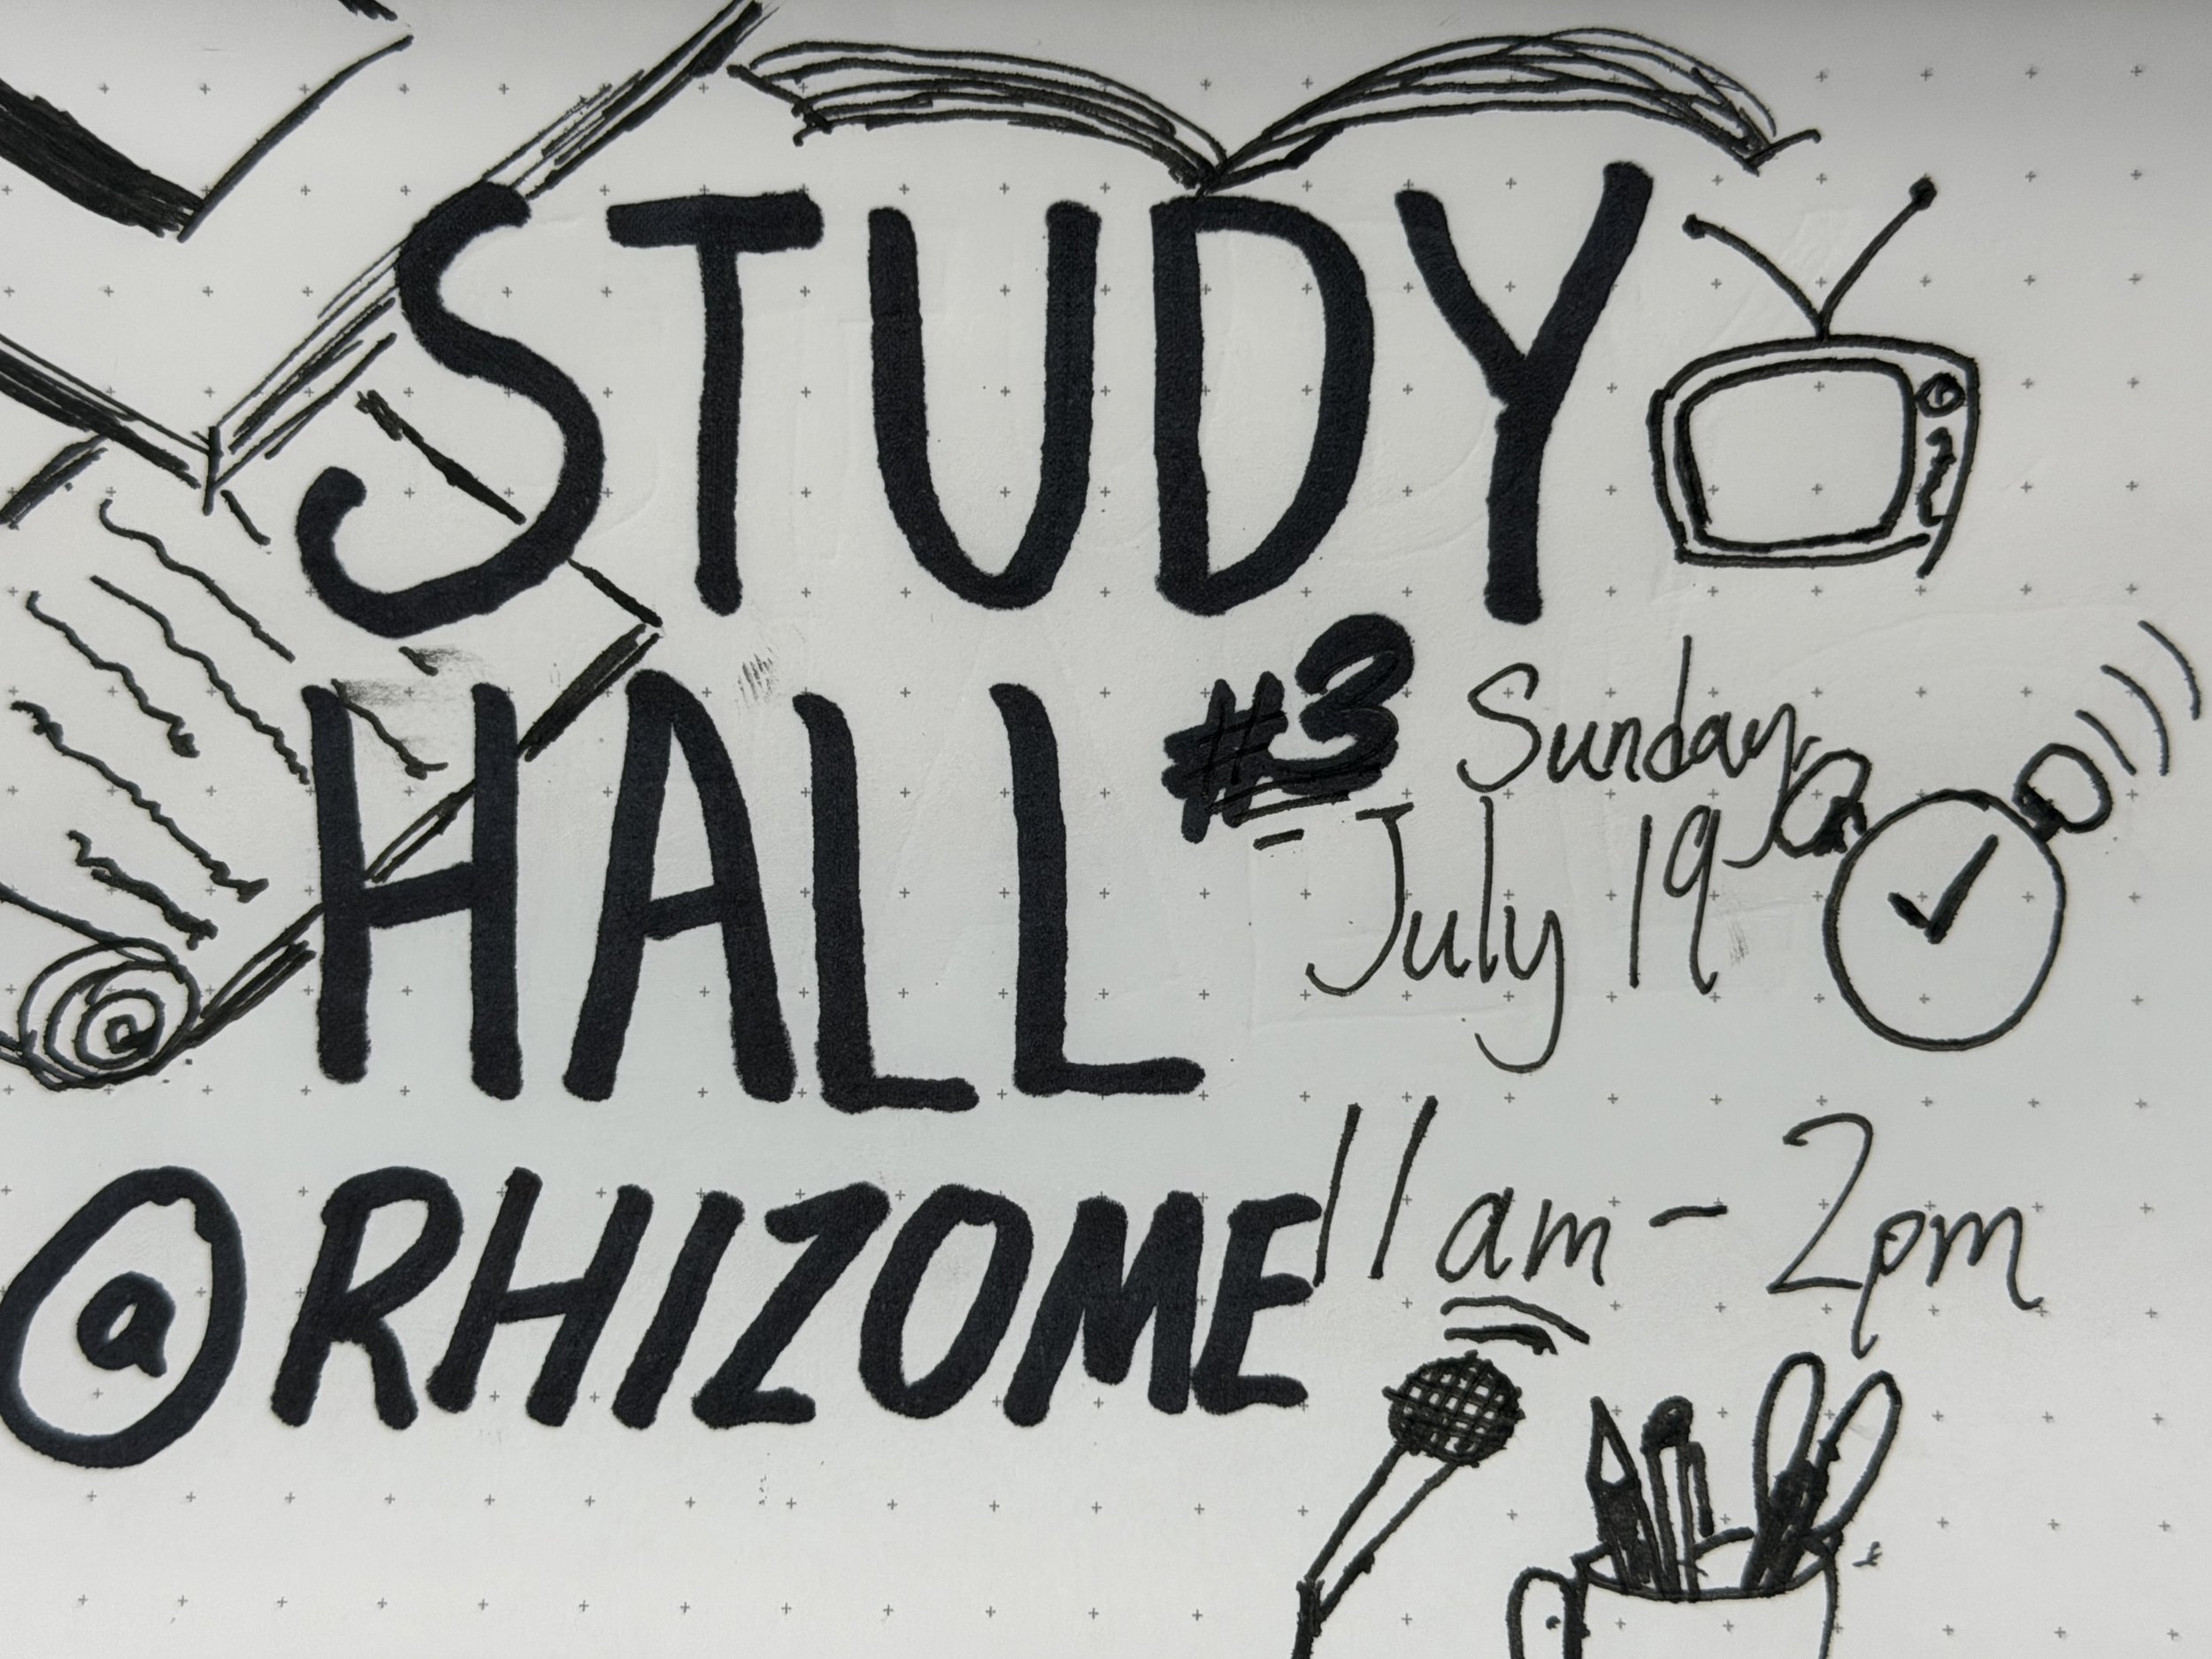 STUDY
HALL #3
Sunday,
July 19
@RHIZOME
11am - 2pm